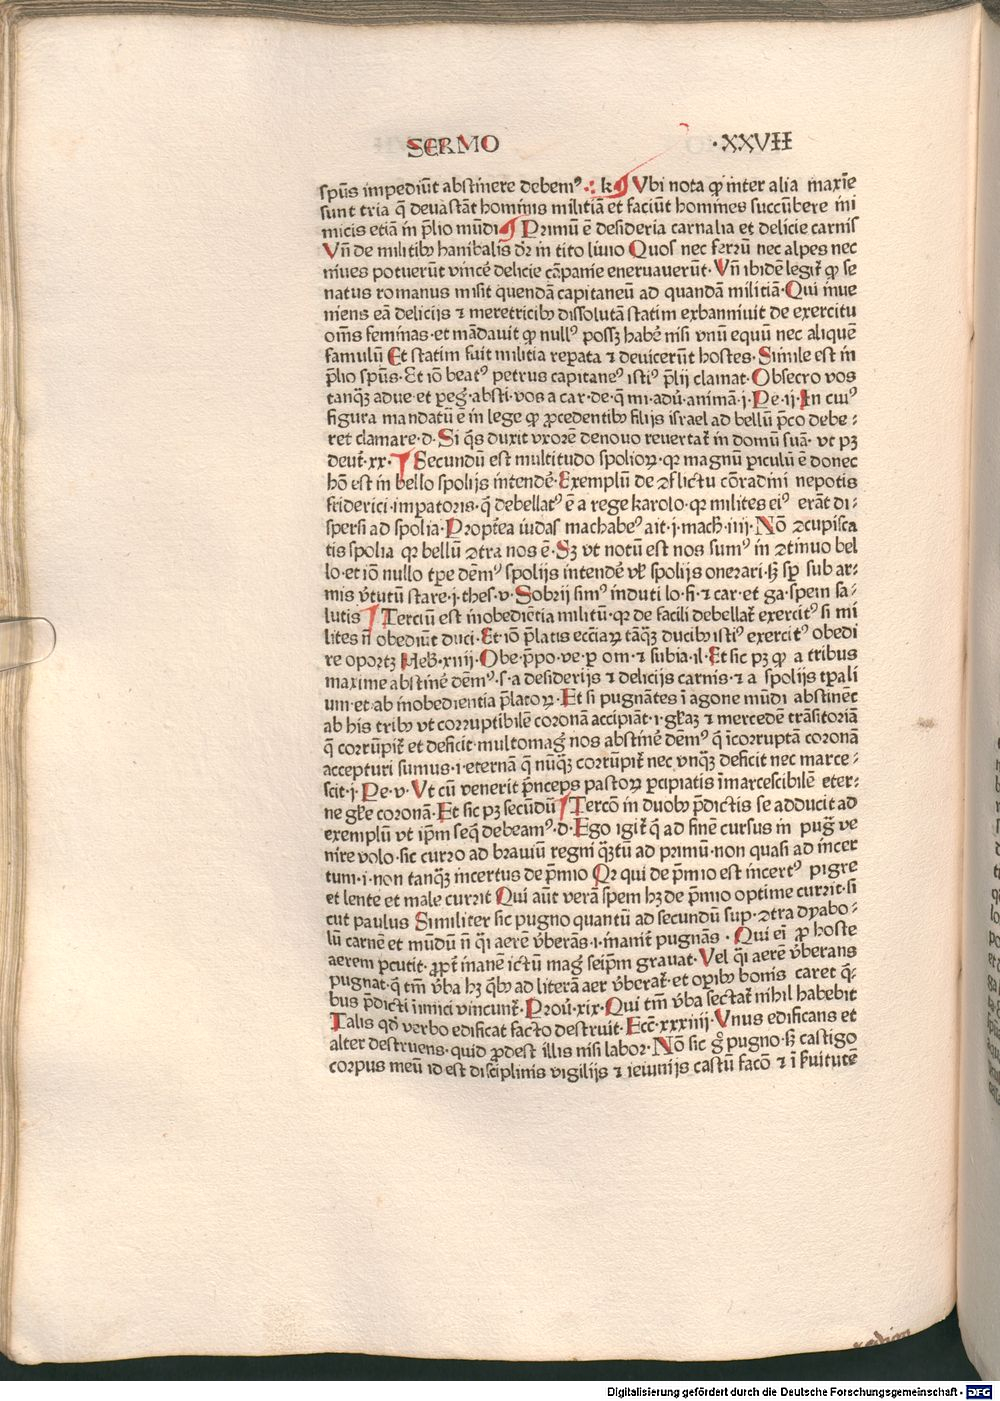 SERMO ·XXVII
spūs impediūt abstinere debemꝰ ∴ k Vbi nota ꝙ inter alia maxīe
sunt tria q̄ deuastāt hominis militiā et faciūt homines succūbere ini
micis etiā in p̄lio mūdi Primū ē desideria carnalia et delicie carnis
Vn̄ de militibꝫ hanibalis dr̄ in tito liuio Quos nec ferrū nec alpes nec
niues potuerūt vincē delicie cāpanie eneruauerūt· Vn̄ ibidē legit̄ ꝙ se
natus romanus misit quendā capitaneū ad quandā militiā· Qui inue
niens eā delicijs ⁊ meretricibꝫ dissolutā statim exbanniuit de exercitu
om̄s feminas· et mādauit ꝙ nullꝰ possꝫ habē nisi vnū equū nec aliquē
famulū Et statim fuit militia repata ⁊ deuicerūt hostes· Simile est in
p̄lio spūs· Et iō beatꝰ petrus capitaneꝰ istiꝰ p̄lij clamat· Obsecro vos
tanqꝫ adue· et peḡ· absti· vos a car· de· q̄ mi· adū· animā· j· Pe· ij· In cuiꝰ
figura mandatū ē in lege ꝙ ꝓcedentibꝫ filijs israel ad bellū p̄co debe⸗
ret clamare· d· Si q̄s duxit vxorē denouo reuertat̄ in domū suā· vt pꝫ
deut̄· xx· Secundū est multitudo spolioꝝ· qr magnū ꝑiculū ē donec
hō est in bello spolijs intendē· Exemplū de ꝯflictu cōradini nepotis
friderici impatoris· q̄ debellatꝰ ē a rege karolo· qr milites eiꝰ erāt di⸗
spersi ad spolia· Propt̄ea iudas machabeꝰ ait· j· mach̄· iiij· Nō ꝯcupisca
tis spolia qr bellū ꝯtra nos ē· Sꝫ vt notū est nos sumꝰ in ꝯtinuo bel
lo· et iō nullo tꝑe dēmꝰ spolijs intendē vel̄ spolijs onerari· sꝫ sp̄ sub ar⸗
mis v̄tutū stare· j· thes· v· Sobrij simꝰ induti lo· fi· ⁊ car· et ga· spem sa⸗
lutis Terciū est inobediētia militū· qr de facili debellat̄ exercitꝰ si mi
lites n̄ obediūt duci· Et iō p̄latis ecciāꝝ tāqꝫ ducibꝫ istiꝰ exercitꝰ obedi
re oportꝫ Heb̄· xiij· Obe· p̄po· ve· ꝑ om· ⁊ subia· il· Et sic pꝫ ꝙ a tribus
maxime abstinē dēmꝰ· s· a desiderijs ⁊ delicijs carnis· ⁊ a spolijs tꝑali
um· et ab inobedientia p̄latoꝝ· Et si pugnātes ī agone mūdi abstinēt
ab his tribꝫ vt corruptibilē coronā accipiāt· i· gl̄iaꝫ ⁊ mercedē trāsitoriā
q̄ corrūpit̄ et deficit· multomaḡ nos abstinē dēmꝰ q̄ īcorruptā coronā
accepturi sumus· i· eternā q̄ nūqꝫ corrūpit̄ nec vnqꝫ deficit nec marce⸗
scit· j· Pe· v· Vt cū venerit p̄nceps pastoꝝ ꝑcipiatis īmarcescibilē eter⸗
ne gl̄e coronā· Et sic pꝫ secūdū Tercō in duobꝫ p̄dictis se adducit ad
exemplū vt ip̄m seq̄ debeamꝰ· d· Ego igit̄ q̄ ad finē cursus in puḡ ve
nire volo· sic curro ad brauiū regni qꝫtū ad primū· non quasi ad incer
tum· i· non tanqꝫ incertus de p̄mio Qr qui de p̄mio est incertꝰ pigre
et lente et male currit Qui aūt verā spem hꝫ de p̄mio optime currit· si
cut paulus Similiter sic pugno quantū ad secundū sup· ꝯtra dyabo⸗
lū carnē et mūdū n̄ q̄i aerē v̄berās· i· manit̄ pugnās· Qui ei̅ ꝓ hoste
aerem ꝑcutit· ꝓpt̄ inanē ictū maḡ seip̄m grauat· Vel q̄i aerē v̄berans
pugnat· q̄ tm̄ v̄ba hꝫ q̄bꝫ ad literā aer v̄berat̄· et oꝑibꝫ bonis caret q̄⸗
bus p̄dicti īimici vincunt̄· Prou̅· xix· Qui tm̄ v̄ba sectat̄ nihil habebit
Talis qd̄ verbo edificat facto destruit· Ecc̄· xxxiiij· Vnus edificans et
alter destruens· quid ꝓdest illis nisi labor· Nō sic g̊ pugno· sꝫ castigo
corpus meū id est disciplinis vigilijs ⁊ ieiunijs castū facō ⁊ ī s̄uitutē
Digitalisierung gefördert durch die Deutsche Forschungsgemeinschaft - DFG